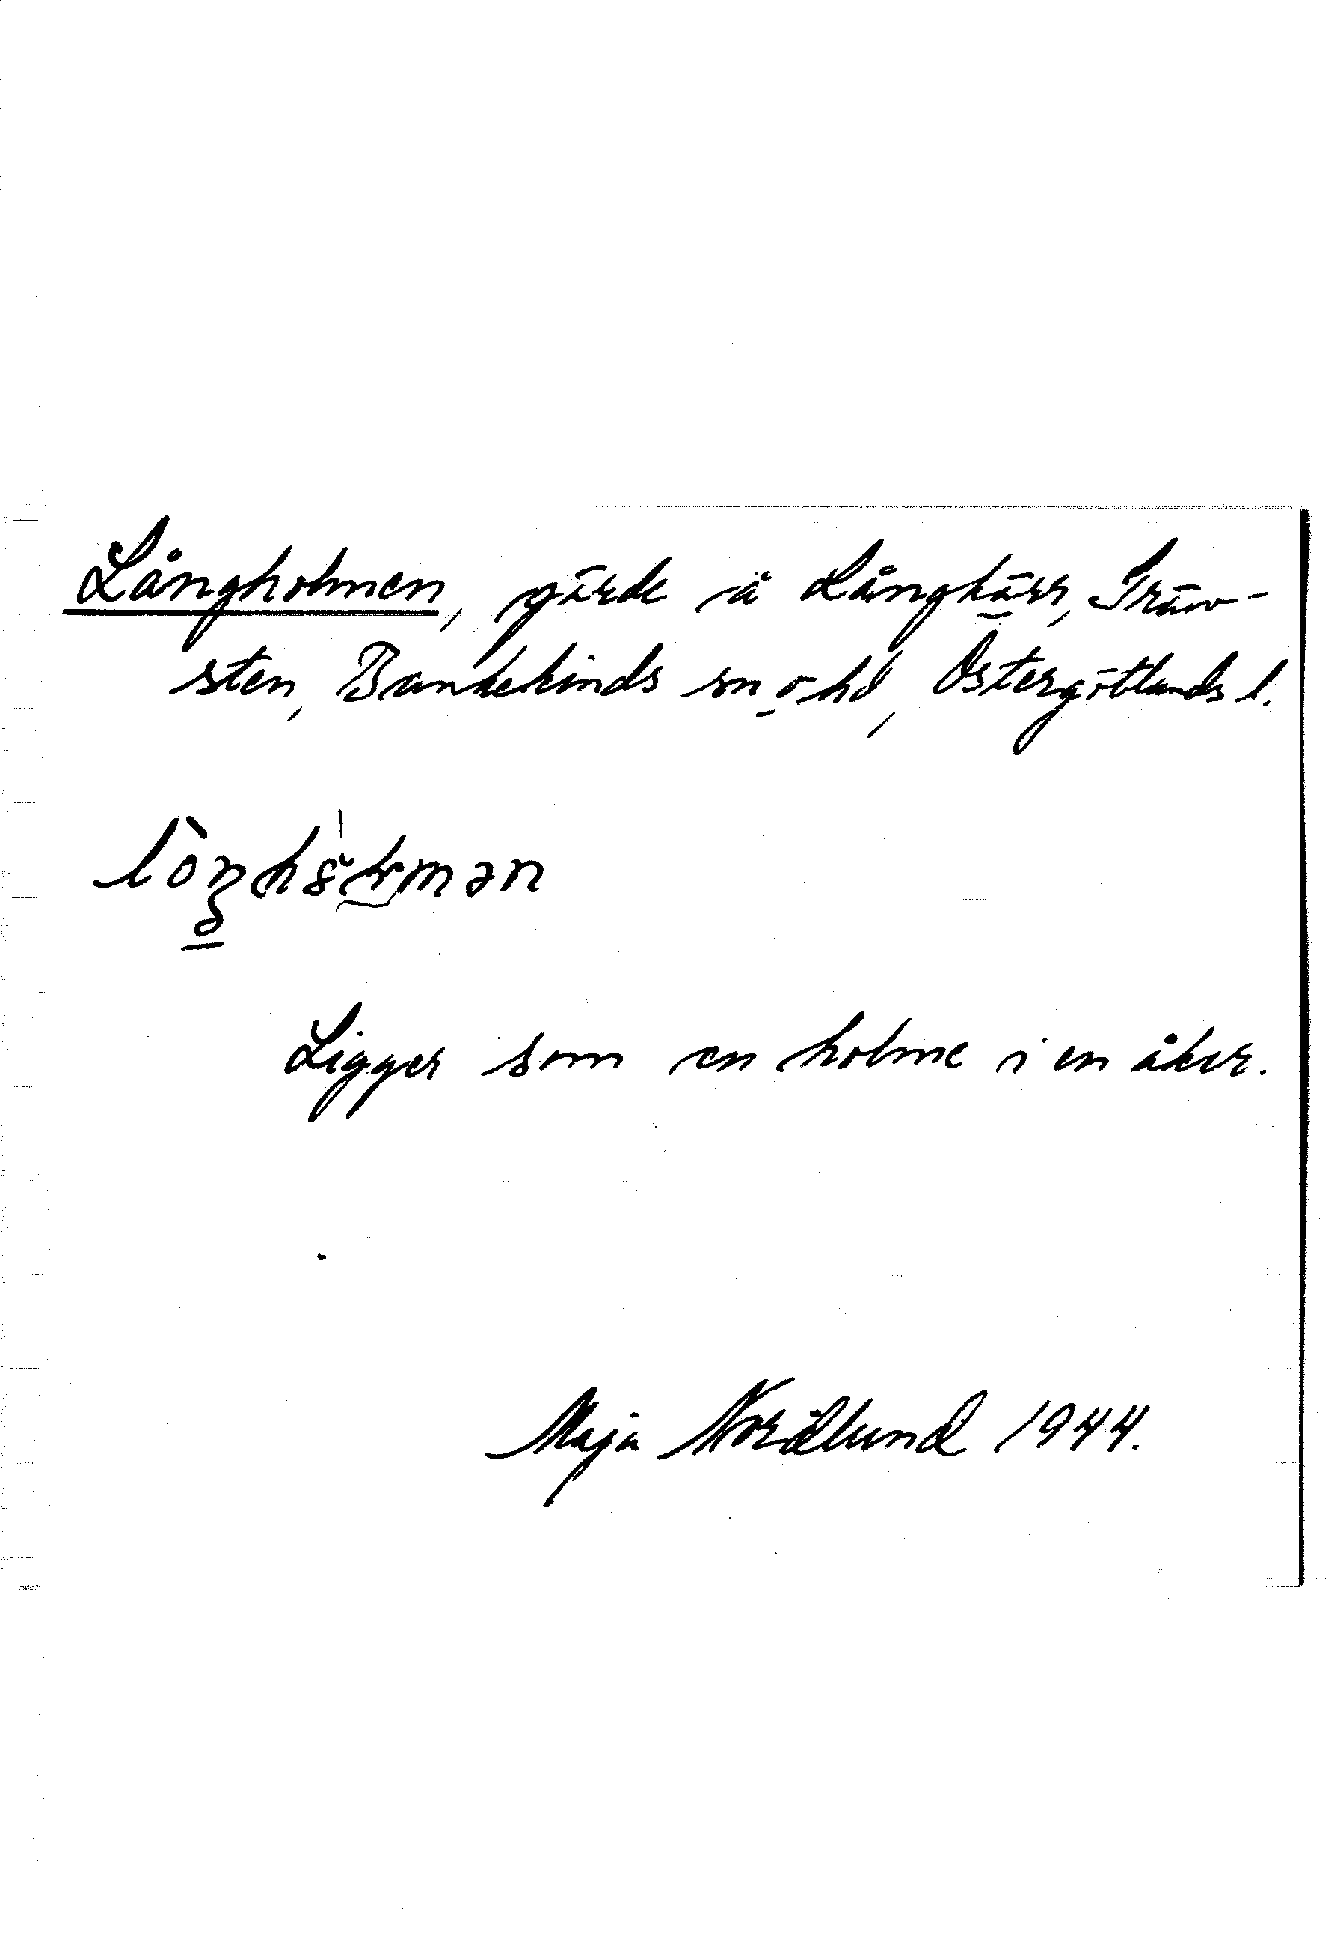 Långholmen, gärde å Långkärr, Gräv-
sten, Bankekinds sn o hd, Östergötlands l.
Ligger som en holme i en åker.
Maja Nordlund 1944.